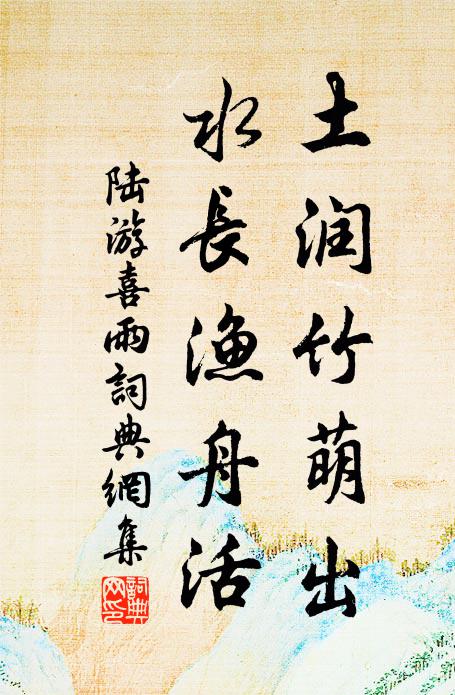 土润竹萌出
水長漁舟活
陆游喜雨詞典網集
詞典網印